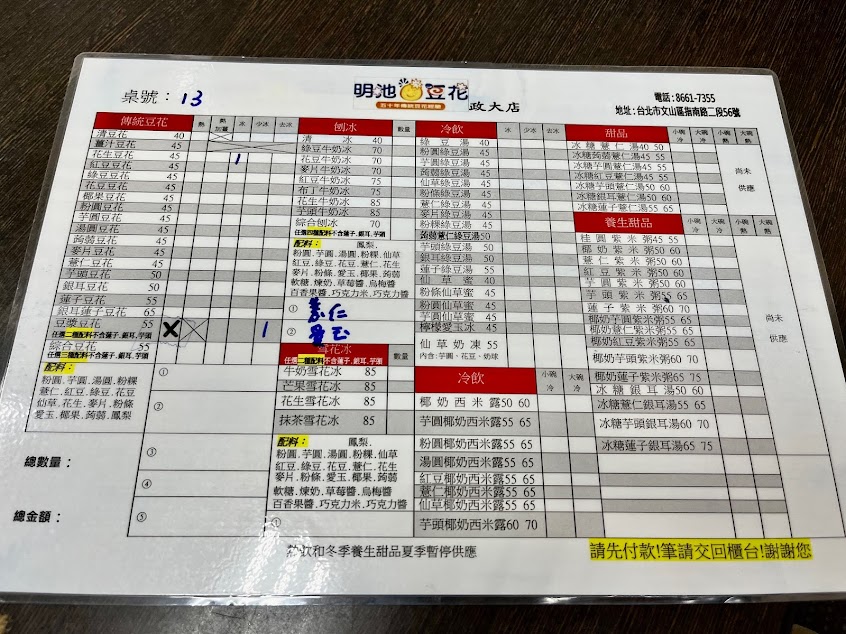 桌號： 13
明池豆花
五十年傳統豆花經驗
政大店
電話 : 8661-7355
地址 : 台北市文山區指南路二段56號
傳統豆花 熱 熱加薑 冰 少冰 去冰
清豆花 40
薑汁豆花 45
紅豆豆花 45 1
綠豆豆花 45
花豆豆花 45
椰果豆花 45
粉圓豆花 45
芋圓豆花 45
湯圓豆花 45
蒟蒻豆花 45
麥片豆花 45
薏仁豆花 45
芋頭豆花 50
銀耳豆花 50
蓮子豆花 55
銀耳蓮子豆花 65
豆漿豆花 55 1
任選二種配料不含蓮子、銀耳、芋頭
綜合豆花 55
任選三種配料不含蓮子、銀耳、芋頭
配料：
粉圓.芋圓.湯圓.粉粿
薏仁.紅豆.綠豆.花豆
仙草.花生.麥片.粉條
愛玉.椰果.蒟蒻.鳳梨
①
②
③
④
⑤
總數量：
總金額：
刨冰 數量
清冰 40
綠豆牛奶冰 70
花豆牛奶冰 70
麥片牛奶冰 70
紅豆牛奶冰 75
布丁牛奶冰 75
花生牛奶冰 85
芋頭牛奶冰 85
綜合刨冰 70
任選四種配料不含蓮子、銀耳、芋頭
配料： 鳳梨.
粉圓.芋圓.湯圓.粉粿.仙草
紅豆.綠豆.花豆.薏仁.花生
麥片.粉條.愛玉.椰果.蒟蒻
軟糖.煉奶.草莓醬.烏梅醬
百香果醬.巧克力米.巧克力醬
① 薏仁
② 愛玉
雪花冰 數量
任選二種配料不含蓮子、銀耳、芋頭
牛奶雪花冰 85
芒果雪花冰 85
花生雪花冰 85
抹茶雪花冰 85
配料： 鳳梨.
粉圓.芋圓.湯圓.粉粿.仙草
紅豆.綠豆.花豆.薏仁.花生
麥片.粉條.愛玉.椰果.蒟蒻
軟糖.煉奶.草莓醬.烏梅醬
百香果醬.巧克力米.巧克力醬
①
冷飲 冰 少冰 去冰
綠豆湯 40
粉圓綠豆湯 45
芋圓綠豆湯 45
蒟蒻綠豆湯 45
仙草綠豆湯 45
粉條綠豆湯 45
薏仁綠豆湯 45
麥片綠豆湯 45
湯圓綠豆湯 45
蒟蒻薏仁綠豆湯50
芋頭綠豆湯 50
銀耳綠豆湯 50
蓮子綠豆湯 55
仙草蜜 40
粉條仙草蜜 45
粉圓仙草蜜 45
芋圓仙草蜜 45
檸檬愛玉冰 45
仙草奶凍 55
內含:芋圓、花豆、奶球
冷飲 小碗冷 大碗冷
椰奶西米露50 60
芋圓椰奶西米露55 65
粉圓椰奶西米露55 65
湯圓椰奶西米露55 65
紅豆椰奶西米露55 65
薏仁椰奶西米露55 65
仙草椰奶西米露55 65
芋頭椰奶西米露60 70
甜品 小碗冷 大碗冷 小碗熱 大碗熱
冰糖薏仁湯40 50
冰糖蒟蒻薏仁湯45 55
冰糖芋圓薏仁湯45 55
冰糖紅豆薏仁湯45 55
冰糖芋頭薏仁湯50 60
冰糖銀耳薏仁湯50 60
冰糖蓮子薏仁湯55 65
尚未
供應
養生甜品 小碗冷 大碗冷 小碗熱 大碗熱
桂圓紫米粥45 55
椰奶紫米粥50 60
薏仁紫米粥50 60
紅豆紫米粥50 60
芋圓紫米粥50 60
芋頭紫米粥55 65
蓮子紫米粥60 70
椰奶芋圓紫米粥55 65
椰奶薏仁紫米粥55 65
椰奶紅豆紫米粥55 65
椰奶芋頭紫米粥60 70
椰奶蓮子紫米粥65 75
冰糖銀耳湯50 60
冰糖薏仁銀耳湯55 65
冰糖芋頭銀耳湯60 70
冰糖蓮子銀耳湯65 75
尚未
供應
熱飲和冬季養生甜品夏季暫停供應
請先付款!筆請交回櫃台!謝謝您